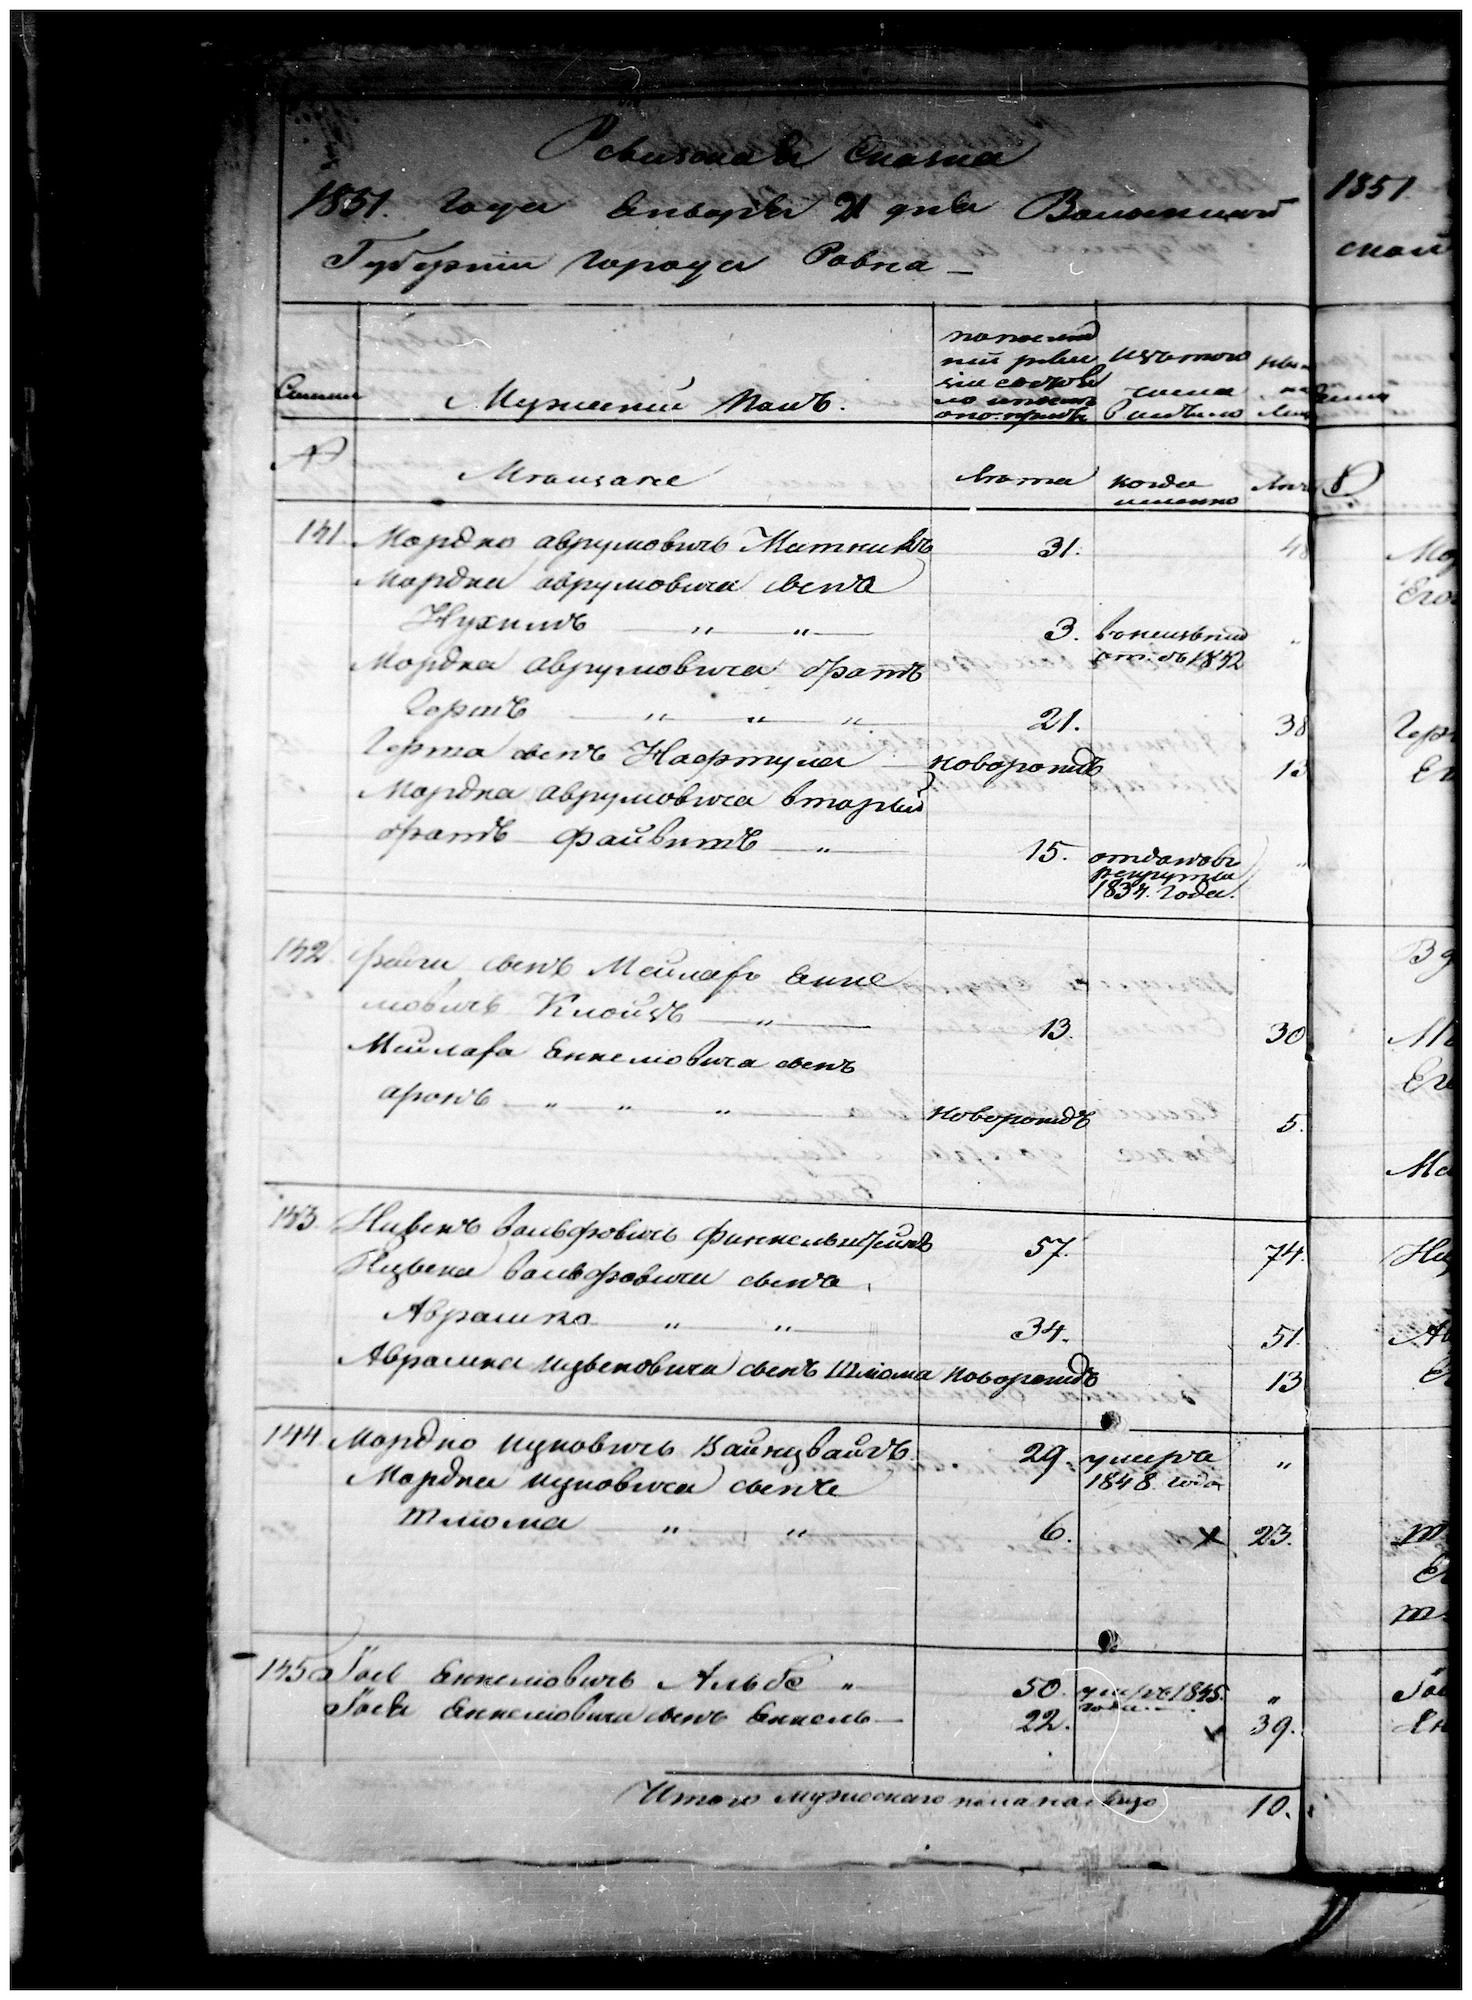 Ревизская Сказка
1851. Года Генваря 21 дня Волынской
Губернии Города Ровна
Семьи
Мужеский Полъ.
по послед
ней реви
зіи состоя
ло и после
оной прибы
Изътого
числа
выбыло
ныне
на
лицо
№
Мещане
Лета
когда
именно
Лета
141 Мордко Аврумовичь Матникъ 31. 48
Мордка Аврумовича сынъ
Нухимъ " " 3. "
1842
Мордка Аврумовича братъ
Гершъ " " " 21. 38
Герша сынъ Нафтула новорожд 13
Мордка Аврумовича вторый
братъ Файвишъ " 15. отданъ въ "
рекруты
1834. Года.
142 сынъ Мейларъ Янке
ловичь Клойцъ " 13. 30
Мейлара Янкеловича сынъ
Аронъ " " " новорожд 5.
143 Вольфовичь Финкельштейнъ 57. 74.
Вольфовича сынъ
Аврашко " " 34. 51.
Аврашка сынъ Шлиома новорожд 13
144 Мордко Ицковичь Вайнцвайгъ 29. умеръ "
Мордка Ицковича сынъ 1848 года
Шлиома " " 6. x 23.
145 Іось Янкеловичь Альбе " 50. умеръ 1845. "
года.
Іося Янкеловича сынъ Янкель 22. 39.
Итого мужескаго пола на лицо 10.
1851.
ской